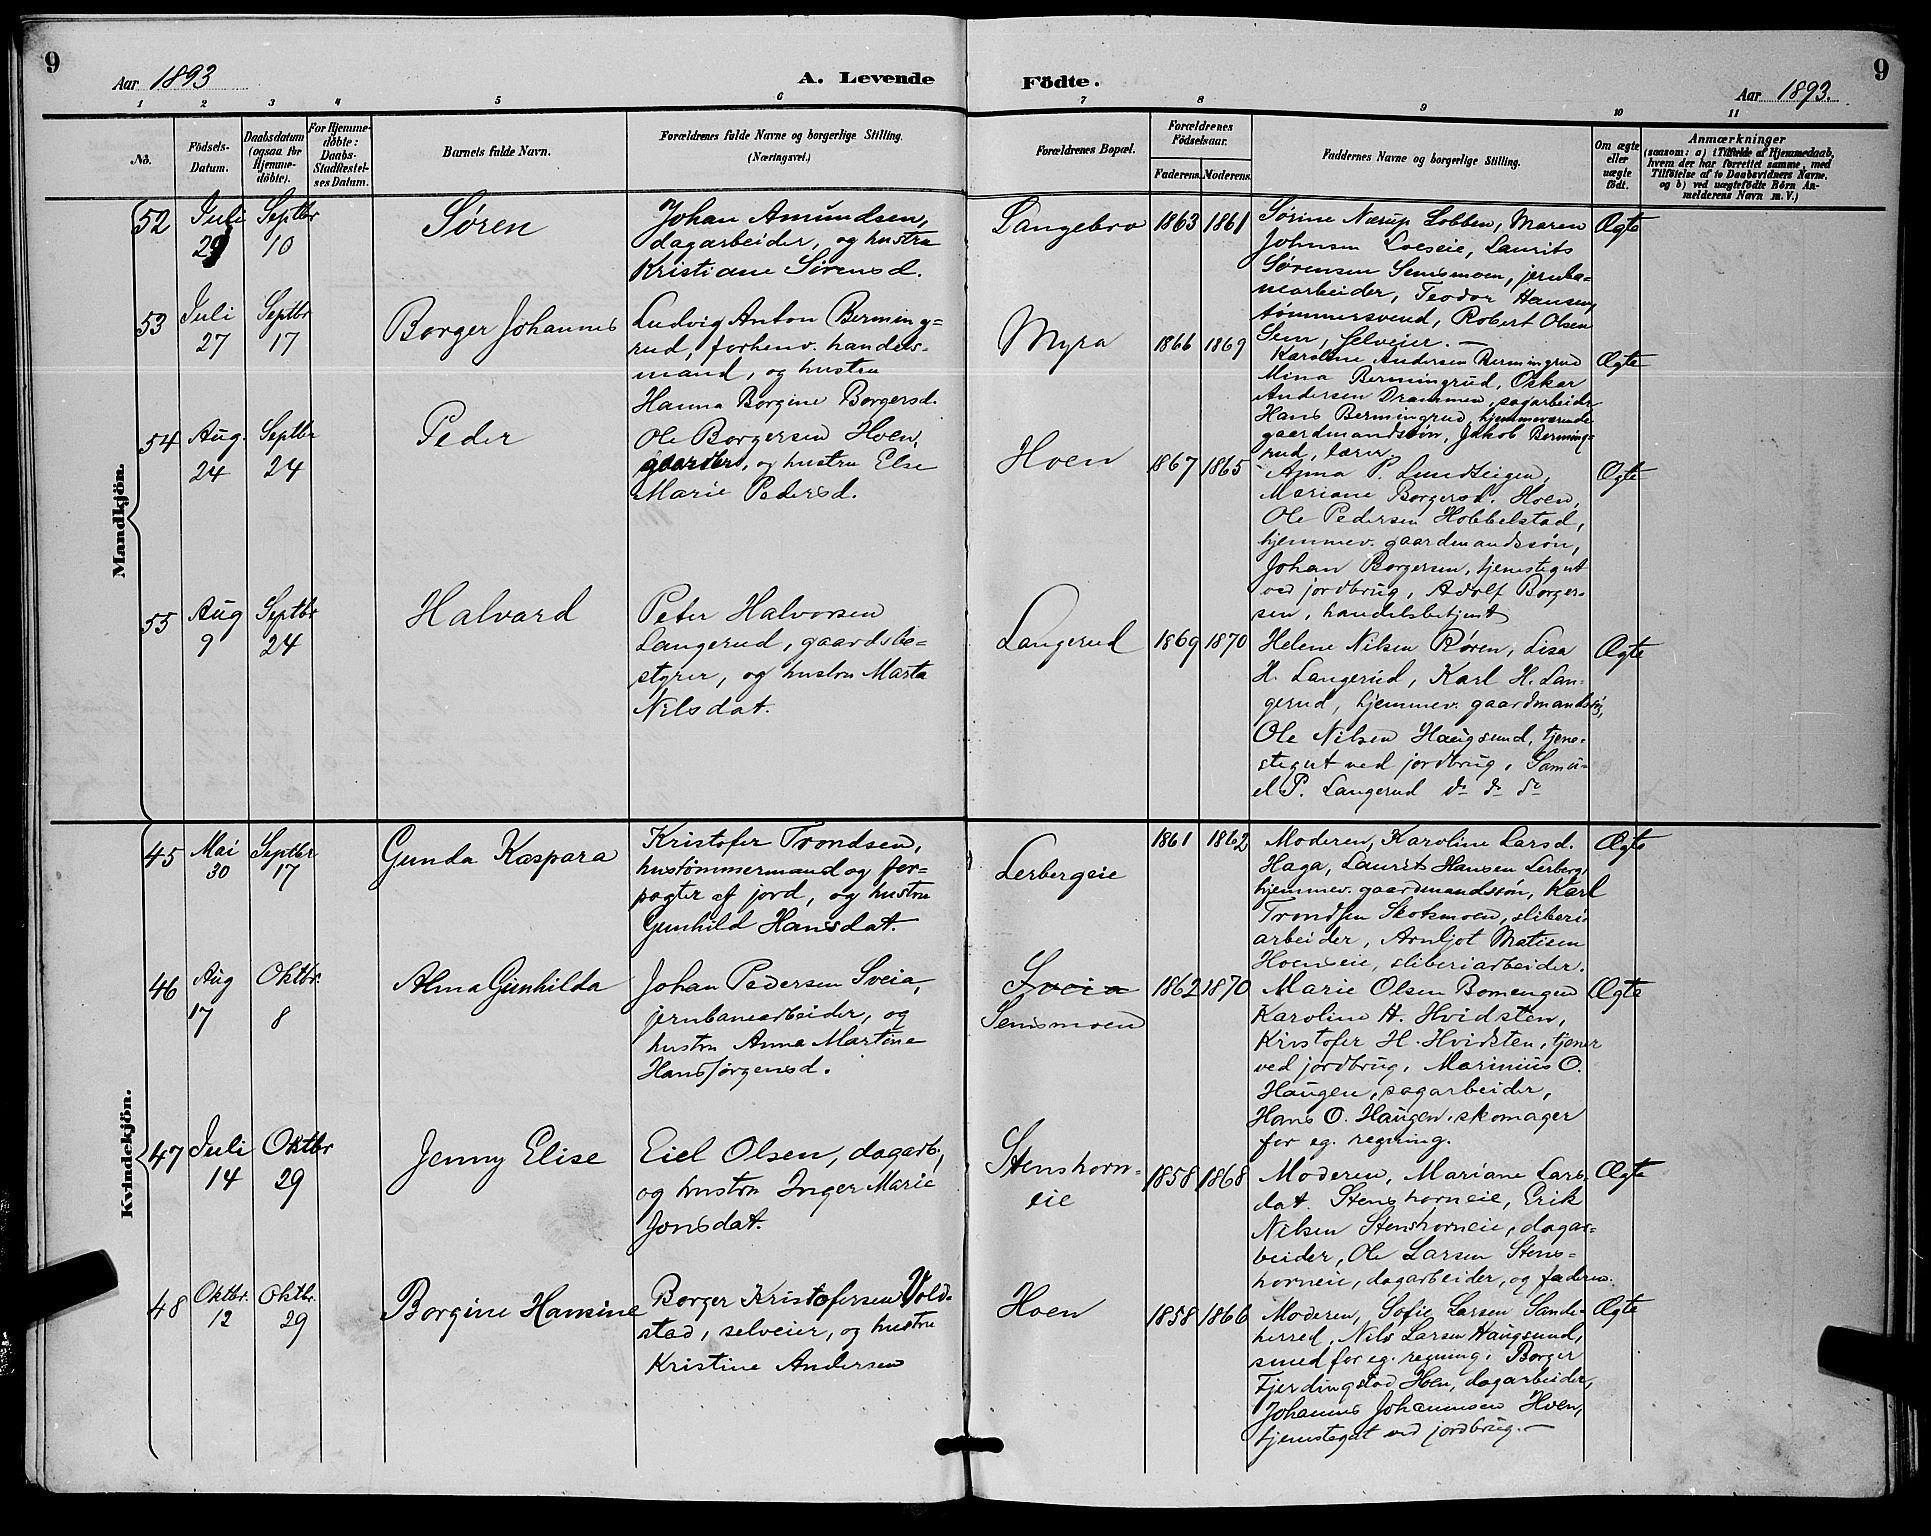 9
Aar 1893
A. Levende
Födte.
Aar 1893.
9
1 2 3 4 5 6 7 8 9 10 11
No.
Födsels-
Datum.
Daabsdatum
(ogsaa for
Hjemme-
döbte).
For Hjemme-
döbte:
Daabs-
Stadfæstel-
ses Datum.
Barnets fulde Navn.
Forældrenes fulde Navne og borgerlige Stilling.
(Næringsvei.)
Forældrenes Bopæl.
Forældrenes
Födselsaar.
Faderens.
Moderens.
Faddernes Navne og borgerlige Stilling.
Om ægte
eller
uægte
födt.
Anmærkninger
(saasom: a) i Tilfælde af Hjemmedaab,
hvem der har forrettet samme, med
Tilföielse af to Daabsvidners Navne.
og b) ved uægtefödte Börn An-
melderens Navn m. V.)
Mandkjön.
52
Juli
29
Septbr
10
Søren
Johan Amundsen,
dagarbeider, og hustru
Kristiane Sørensd.
Langebro
1863
1861
Sørine Nærup Lobben, Maren
Johnsen Loeseie, Laurits
Sørensen Semsmoen, jernba-
nearbeider, Teodor Hansen,
tømmersvend, Robert Olsen
Sem, selveier. —
Ægte
53
Juli
27
Septbr
17
Borger Johannes
Ludvig Anton Berming=
rud, forhenv. handels-
mand, og hustru
Hanna Borgine Borgersd.
Myra
1866
1869
Karoline Andersen Bermingrud
Mina Bermingrud, Oskar
Andersen Drammen, sagarbeider
Hans Bermingrud, hjemmeværende
gaardmandssøn, Jakob Berming-
rud, lærer.
Ægte
54
Aug.
24
Septbr
24
Peder
Ole Borgersen Hoen,
gaardbr, og hustru Else
Marie Pedersd.
Hoen
1867
1865
Anna P. Lundteigen,
Mariane Borgersd. Hoen,
Ole Pedersen Hobbelstad,
hjemmev. gaardmandssøn,
Johan Borgersen, tjenestegut
ved jordbrug, Adolf Borger-
sen, handelsbetjent
Ægte
55
Aug
9
Septbr
24
Halvard
Peter Halvorsen
Langerud, gaardsbe-
styrer, og hustru Marta
Nilsdat.
Langerud
1869
1870
Helene Nilsen Røren, Lisa
H. Langerud, Karl H. Lan-
gerud, hjemmev. gaardmandssøn,
Ole Nilsen Haugsund, tjene-
stegut ved jordbrug, Samu-
el P. Langerud do do do
Ægte
Kvindekjön.
45
Mai
30
Septbr
17
Gunda Kaspara
Kristofer Trondsen,
hustømmermand og for-
pagter af jord, og hustru
Gunhild Hansdat.
Lerbergeie
1861
1862
Moderen, Karoline Larsd.
Haga, Laurits Hansen Lerberg,
hjemmev. gaardmandssøn, Karl
Trondsen Skotsmoen, sliberi
arbeider, Arnljot Matisen
Hoenseie, sliberiarbeider.
Ægte
46
Aug
17
Oktbr.
8
Alma Gunhilda
Johan Pedersen Sveia,
jernbanearbeider, og
hustru Anna Martine
Hansjørgensd.
Sveia
Semsmoen
1862
1870
Marie Olsen Bomengen
Karoline H. Hvidsten,
Kristofer H. Hvidsten, tjener
ved jordbrug, Marinius O.
Haugen, sagarbeider,
Hans O. Haugen, skomager
for eg. regning.
Ægte
47
Juli
14
Oktbr
29
Jenny Elise
Eiel Olsen, dagarb.,
og hustru Inger Marie
Jonsdat.
Stenshorn-
eie
1858
1868
Moderen, Mariane Lars-
dat. Stenshorneie, Erik
Nilsen Stenshorneie, dagar-
beider, Ole Larsen Stens-
horneie, dagarbeider, og faderen.
Ægte
48
Oktbr.
12
Oktbr.
29
Borgine Hansine
Borger Kristofersen Vold-
stad, selveier, og hustru
Kristine Andersen
Hoen
1858
1866
Moderen, Sofie Larsen Sande-
herred, Nils Larsen Haugsund,
smed for eg. regning, Borger
Fjerdingstad Hoen, dagarbeider,
Johannes Johannesen Hoen,
tjenestegut ved jordbrug. —
Ægte